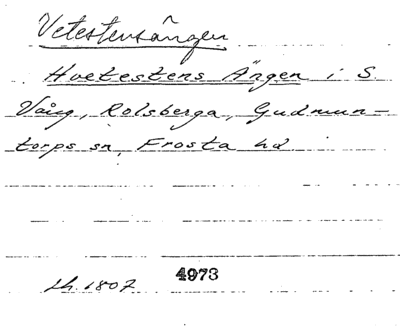 Vetestensängen
Hvetestens Ängen i S.
Vång, Rolsberga, Gudmun-
torps sn, Frosta hd
4973
Lh. 1807